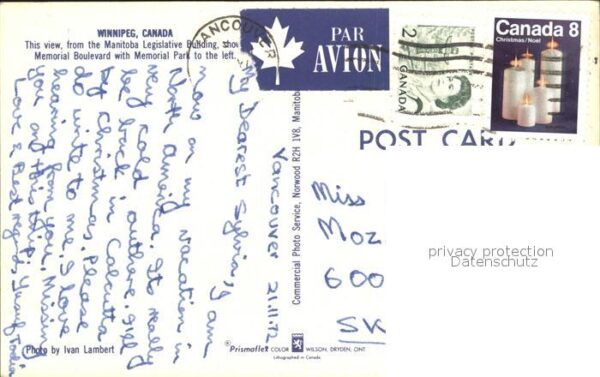 WINNIPEG, CANADA
This view, from the Manitoba Legislative Building, show
Memorial Boulevard with Memorial Park to the left.
VANCOUVER
PAR
AVION
2
CANADA
Canada 8
Christmas/Noël
POST CARD
Vancouver 21.11.72
My Dearest Sylvia, I am
now on my vacation in
North America. Its really
very cold outhere. I'll
be back in Calcutta
by Christmas. Please
do write to me. I love
hearing from you. Missing
you on this trip.
Love & Best regards,
Commercial Photo Service, Norwood R2H 1V8, Manitoba
Miss
Moz
600
SK
privacy protection
Datenschutz
Photo by Ivan Lambert
Prismaflex COLOR WILSON, DRYDEN, ONT
Lithographed in Canada